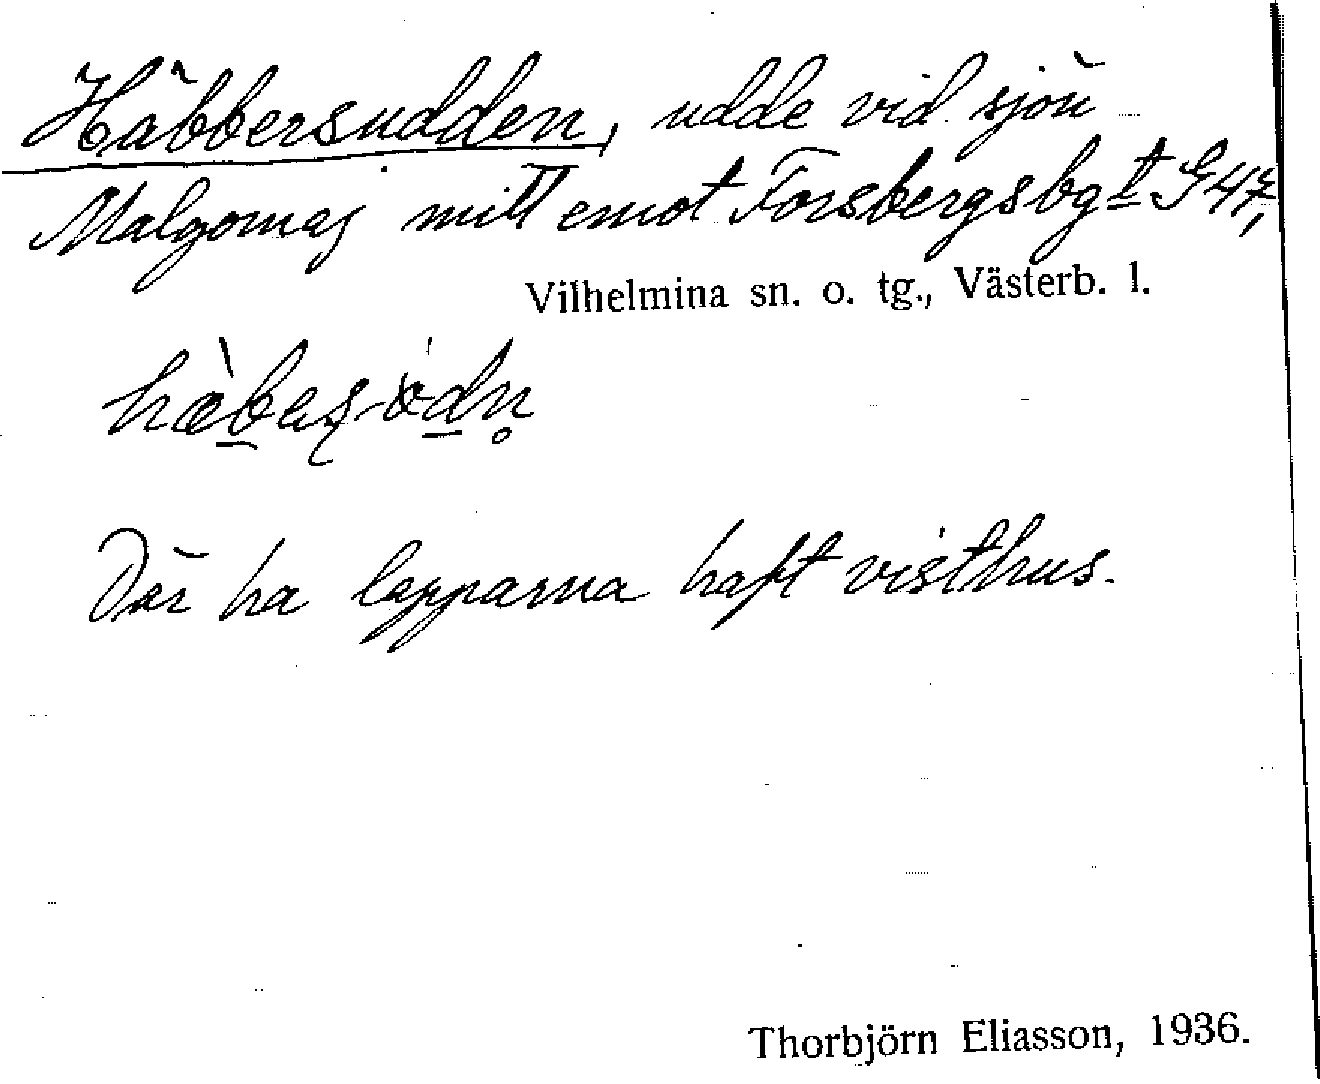 Häbbersudden, udde vid sjön
Malgomaj mitt emot Forsbergsbgt G47,
Vilhelmina sn. o. tg., Västerb. l.
Där ha lapparna haft visthus.
Thorbjörn Eliasson, 1936.